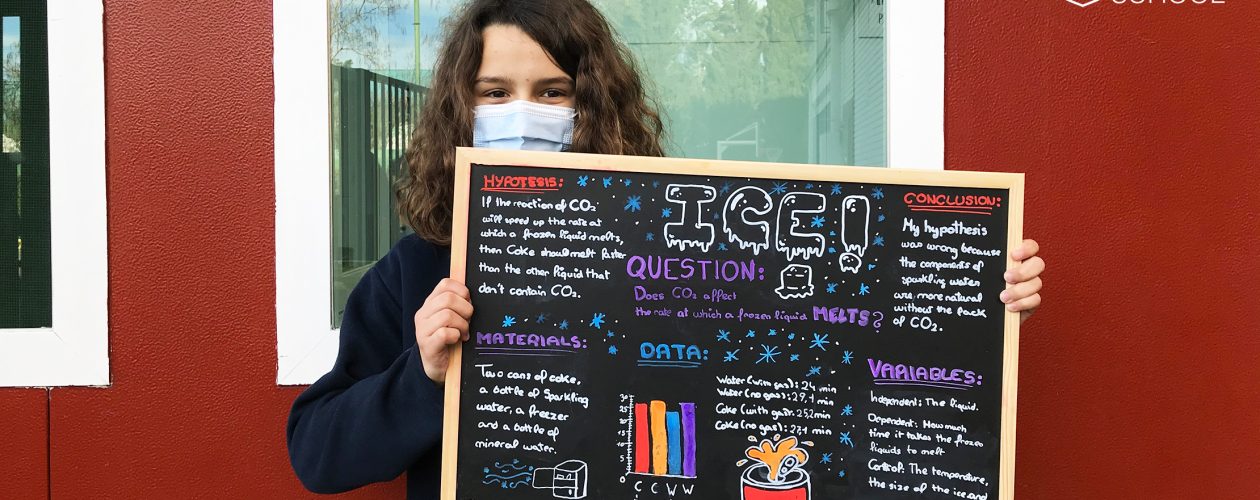 SCHOOL
HYPOTESIS:
If the reaction of CO₂
will speed up the rate at
which a frozen liquid melts,
then Coke should melt faster
than the other liquid that
don't contain CO₂.
ICE!
QUESTION:
Does CO₂ affect
the rate at which a frozen liquid MELTS?
CONCLUSION:
My hypothesis
was wrong because
the components of
sparkling water
are more natural
without the pack
of CO₂.
MATERIALS:
Two cans of coke,
a bottle of sparkling
water, a freezer
and a bottle of
mineral water.
DATA:
30
25
20
15
10
5
0
C C W W
Water (with gas): 24 min
Water (no gas): 29,1 min
Coke (with gas): 25,2 min
Coke (no gas): 27,1 min
VARIABLES:
Independent: The liquid.
Dependent: How much
time it takes the frozen
liquids to melt
Control: The temperature,
the size of the ice and